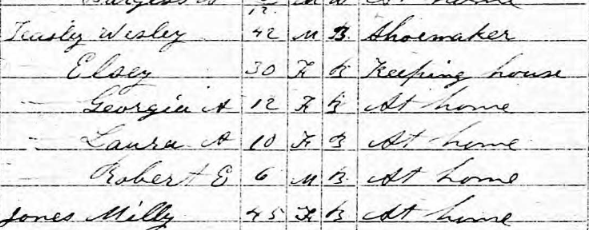 At home
Teasly Wesley 42 M B Shoemaker
Elsey 30 F B Keeping house
— Georgia A 12 F B At home
— Laura A 10 F B At home
— Robert E 6 M B At home
Jones Milly 45 F B At home